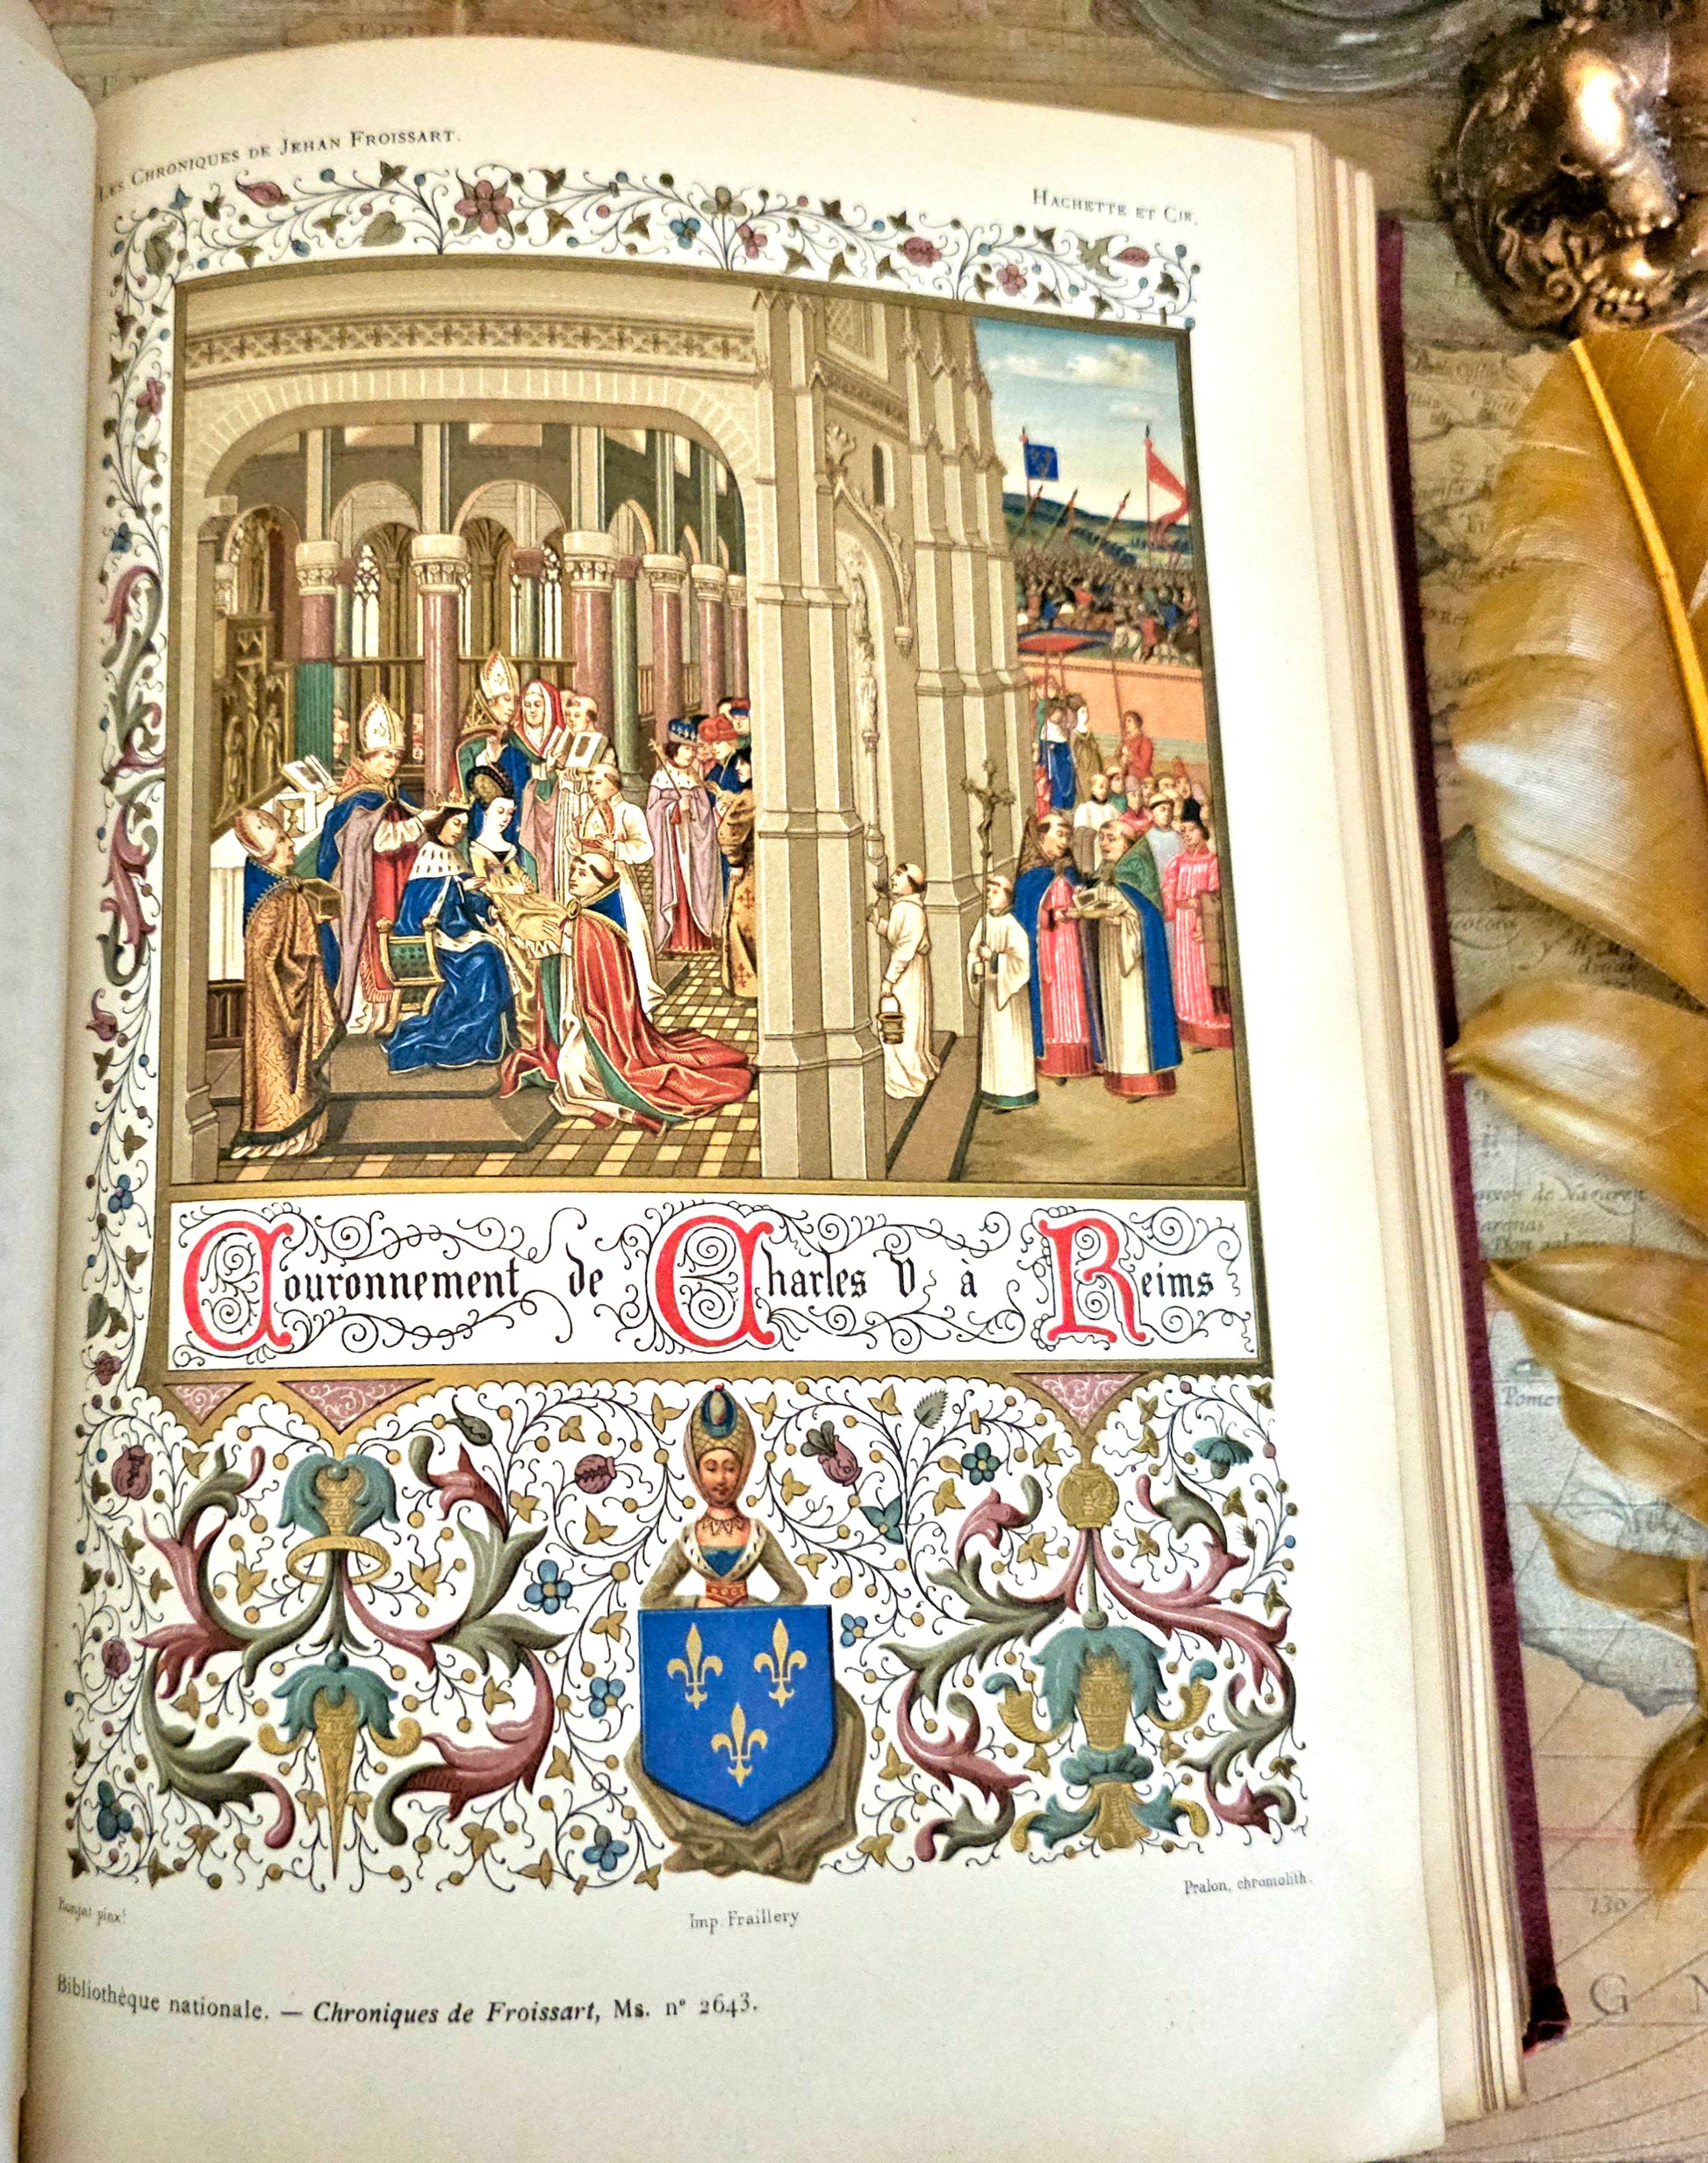 Les Chroniques de Jehan Froissart.
Hachette et Cie.
Couronnement de Charles V à Reims
pinxt
Imp. Fraillery
Pralon, chromolith.
Bibliothèque nationale. — Chroniques de Froissart, Ms. n° 2643.
130
G